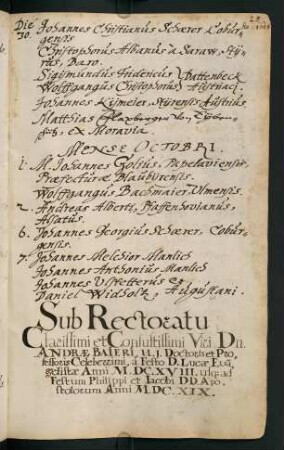 Die
30. Johannes Christianus Scherer Cobur-
gensis
Christophorus Albanus à Saraw, Sty-
rus, Baro.
Sigismundus Fridericus
Wolffgangus Christophorus
Johannes Styrensis Austrius
Matthias
ex Moravia.
MENSE OCTOBRI.
1. M. Johannes Golius, Papelaviensis
Præfecturæ Blauburensis.
Wolffgangus Bachmaier Ulmensis.
2. Andreas Alberti, Pfaffenhovianus,
Alsatus.
6. Johannes Georgius Scherer, Cobur-
gensis.
7. Johannes Melchior Manlich
Johannes Anthonius Manlich
Johannes Ulstetterus &
Daniel Widholtz, Augustani.
Sub Rectoratu
Clarissimi et Consultissimi Viri Dn.
ANDREÆ BAIERI, U.J. Doctoris et Pro-
fessoris Celeberrimi, à Festo D. Lucæ Evan-
gelistæ Anni M.DC.XVIII. usq; ad
Festum Philippi et Iacobi DD. Apo-
stolorum Anni M.DC.XIX.